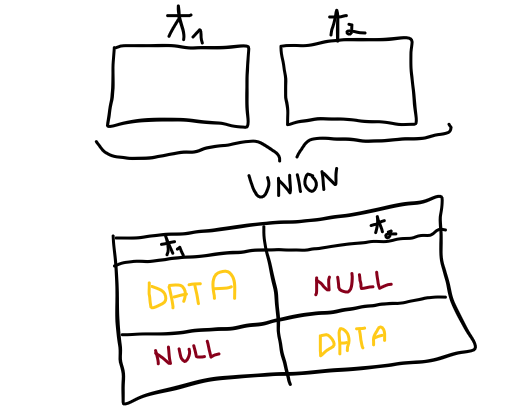 t1 t2
UNION
t1 t2
DATA NULL
NULL DATA